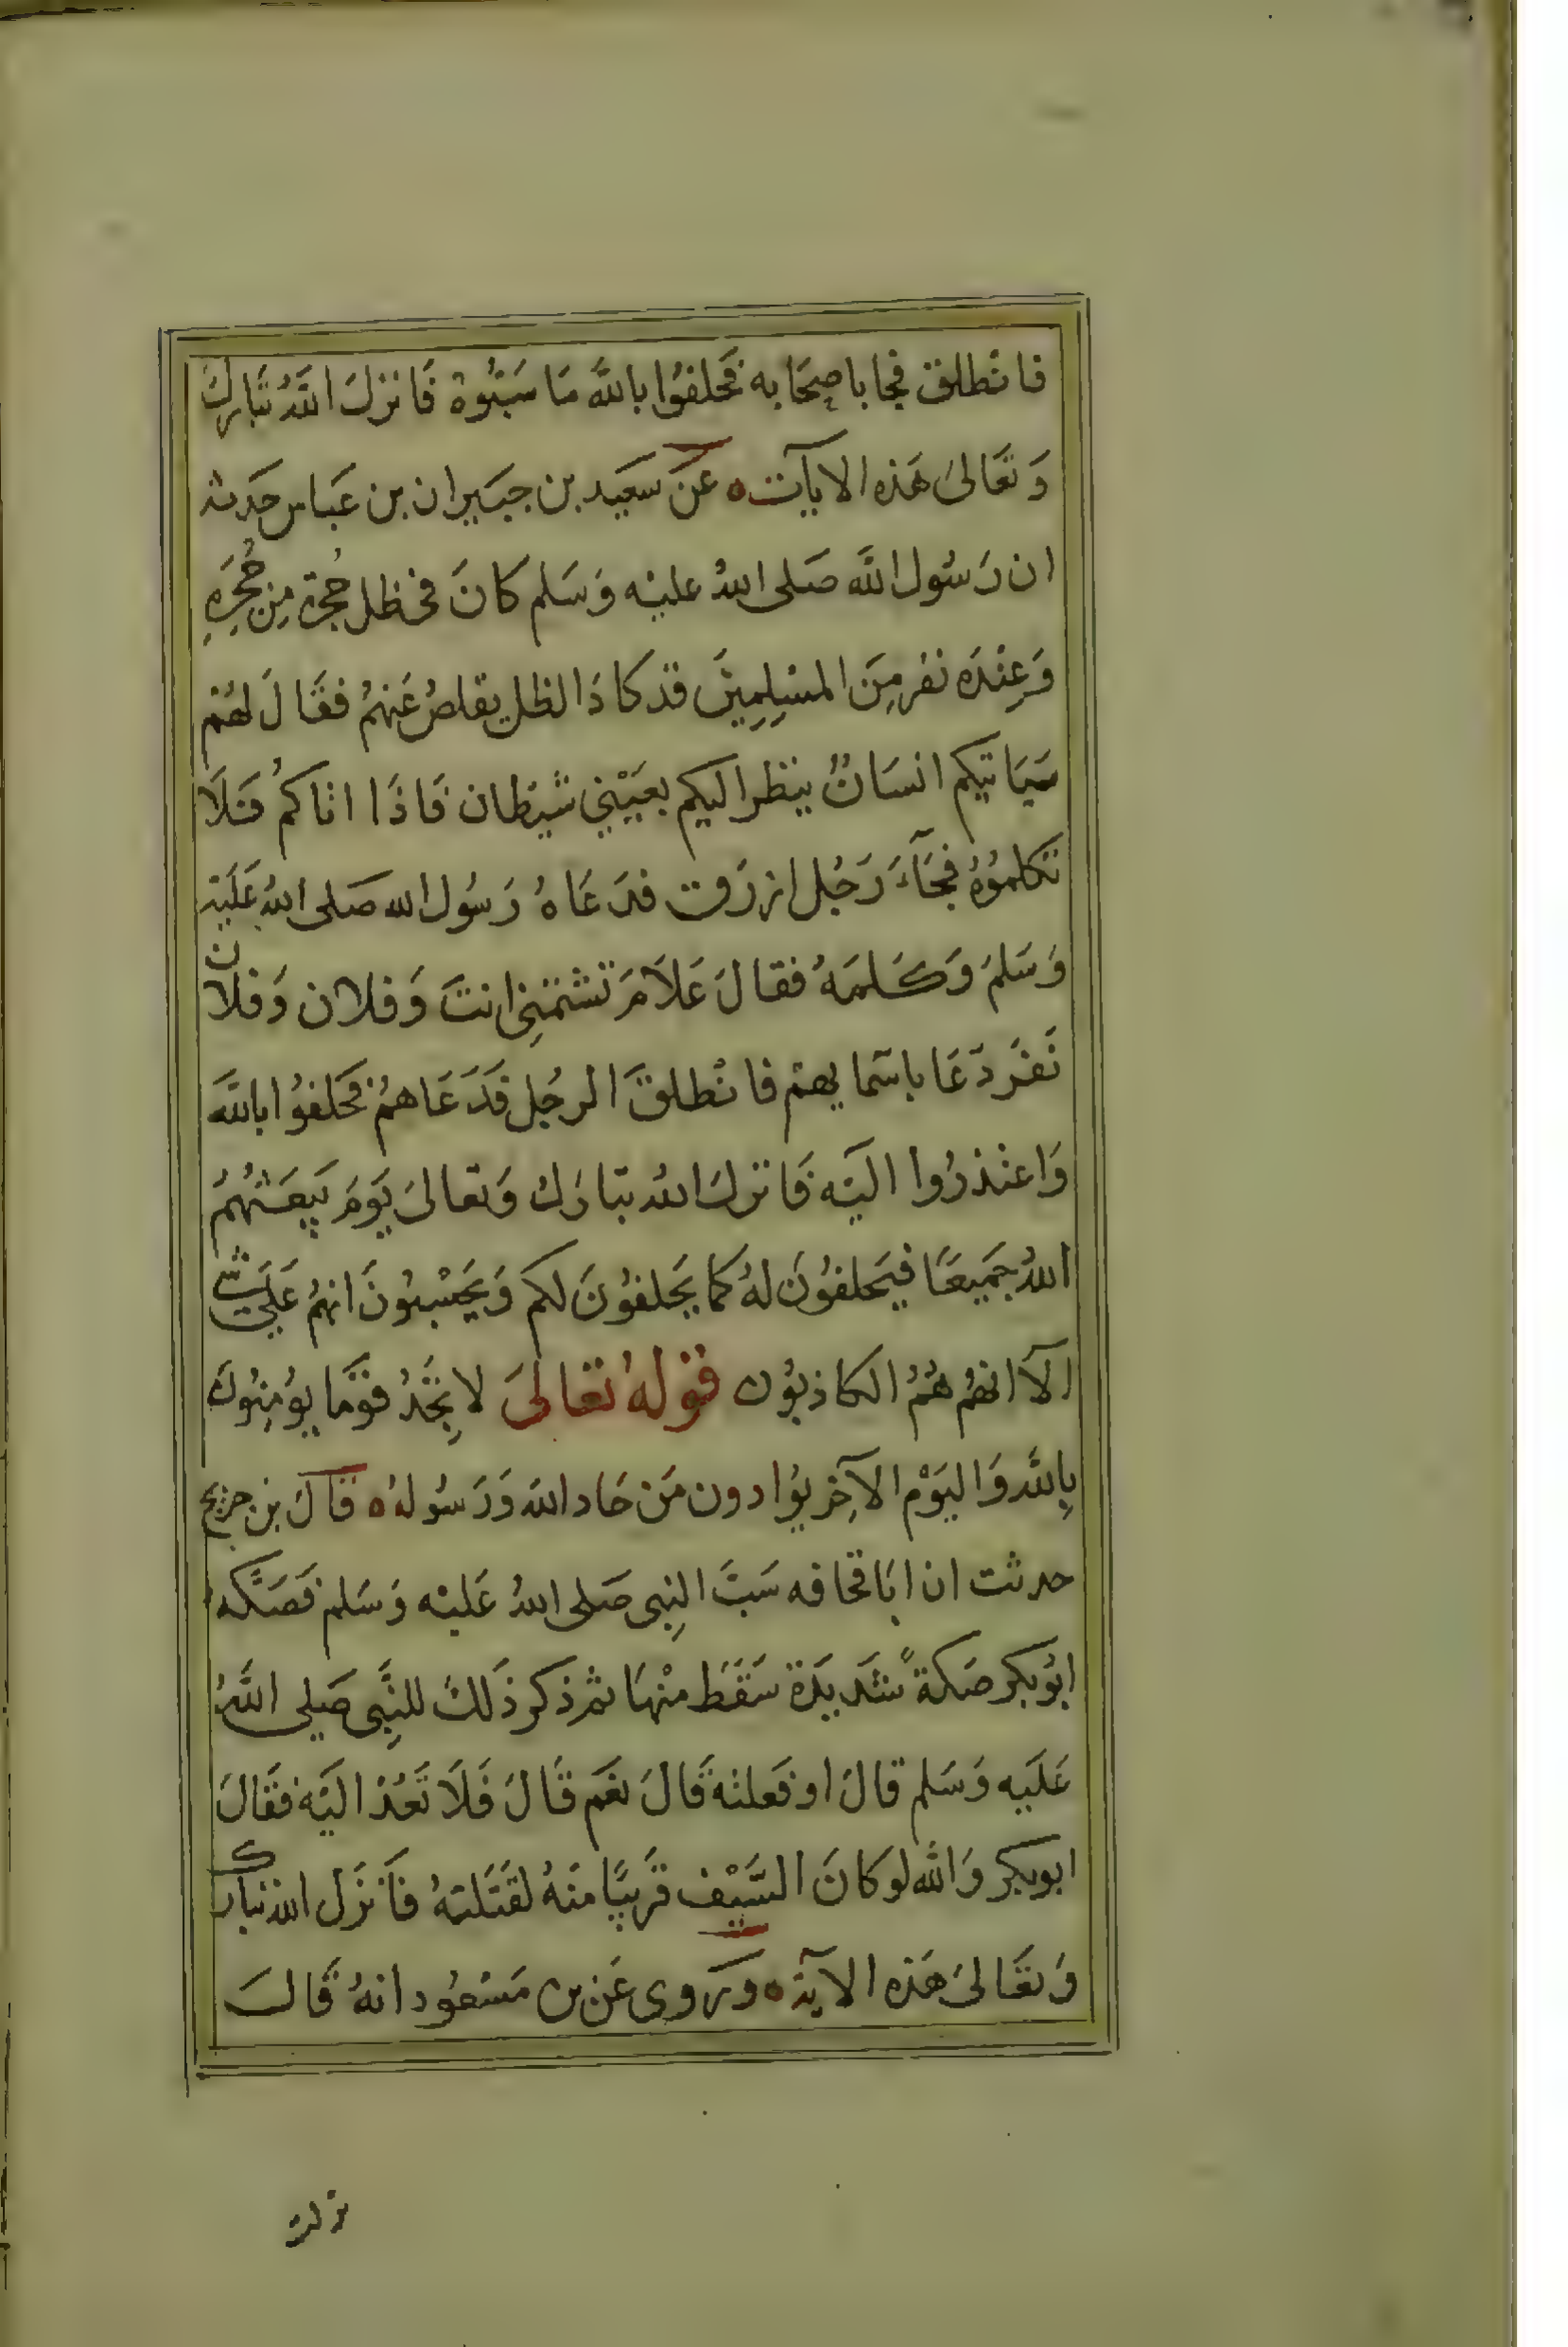 فانطلق فجا باصحابه فحلفوا بالله ما سبوه فانزل الله تبارك
وتعالى هذه الايآت ه عن سعيد بن جبير ان بن عباس حدثه
ان رسول الله صلى الله عليه وسلم كان في ظل حجرة من حجره
وعنده نفر من المسلمين قد كاد الظل يقلص عنهم فقال لهم
سياتيكم انسان ينظر اليكم بعيني شيطان فاذا اتاكم فلا
تكلموه فجآء رجل ازرق فدعاه رسول الله صلى الله عليه
وسلم وكلمه فقال علام تشتمني انت وفلان وفلان
نفر دعا باسمايهم فانطلق الرجل فدعاهم فحلفوا بالله
واعتذروا اليه فانزل الله تبارك وتعالى يوم يبعثهم
الله جميعا فيحلفون له كما يحلفون لكم ويحسبون انهم على شي
الآ انهم هم الكاذبون قوله تعالى لا تجد قوما يومنون
بالله واليوم الآخر يوادون من حاد الله ورسوله ه قال بن جريج
حدثت ان ابا قحافه سب النبي صلى الله عليه وسلم فصكه
ابو بكر صكة شديدة سقط منها ثم ذكر ذلك للنبي صلى الله
عليه وسلم قال او فعلته قال نعم قال فلا تعد اليه فقال
ابو بكر والله لو كان السيف قريبا منه لقتلته فانزل الله تبارك
وتعالى هذه الآية ه وروى عن بن مسعود انه قال
نزلت